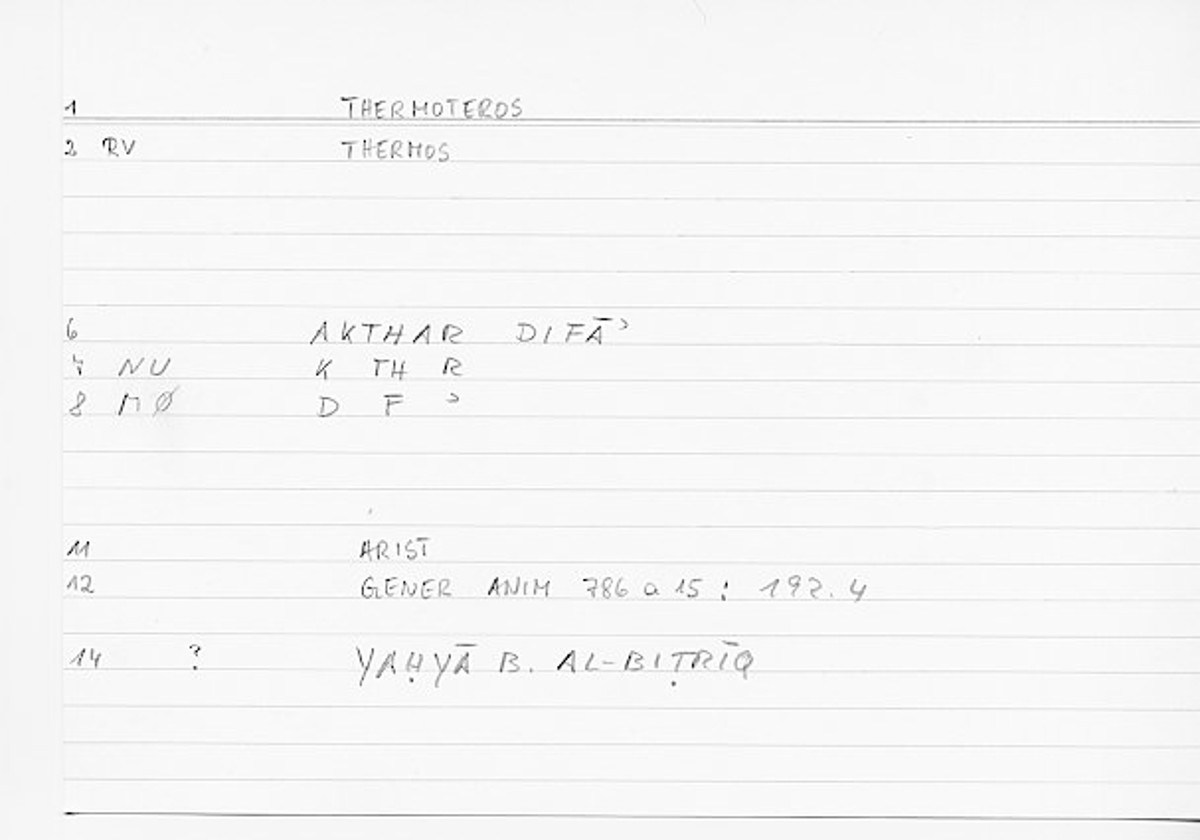 1 THERMOTEROS
2 RV THERMOS
6 AKTHAR DIFĀʾ
7 NU K TH R
8 MØ D F ʾ
11 ARIST
12 GENER ANIM 786 a 15 : 192.4
14 ? YAḤYĀ B. AL-BIṬRĪQ